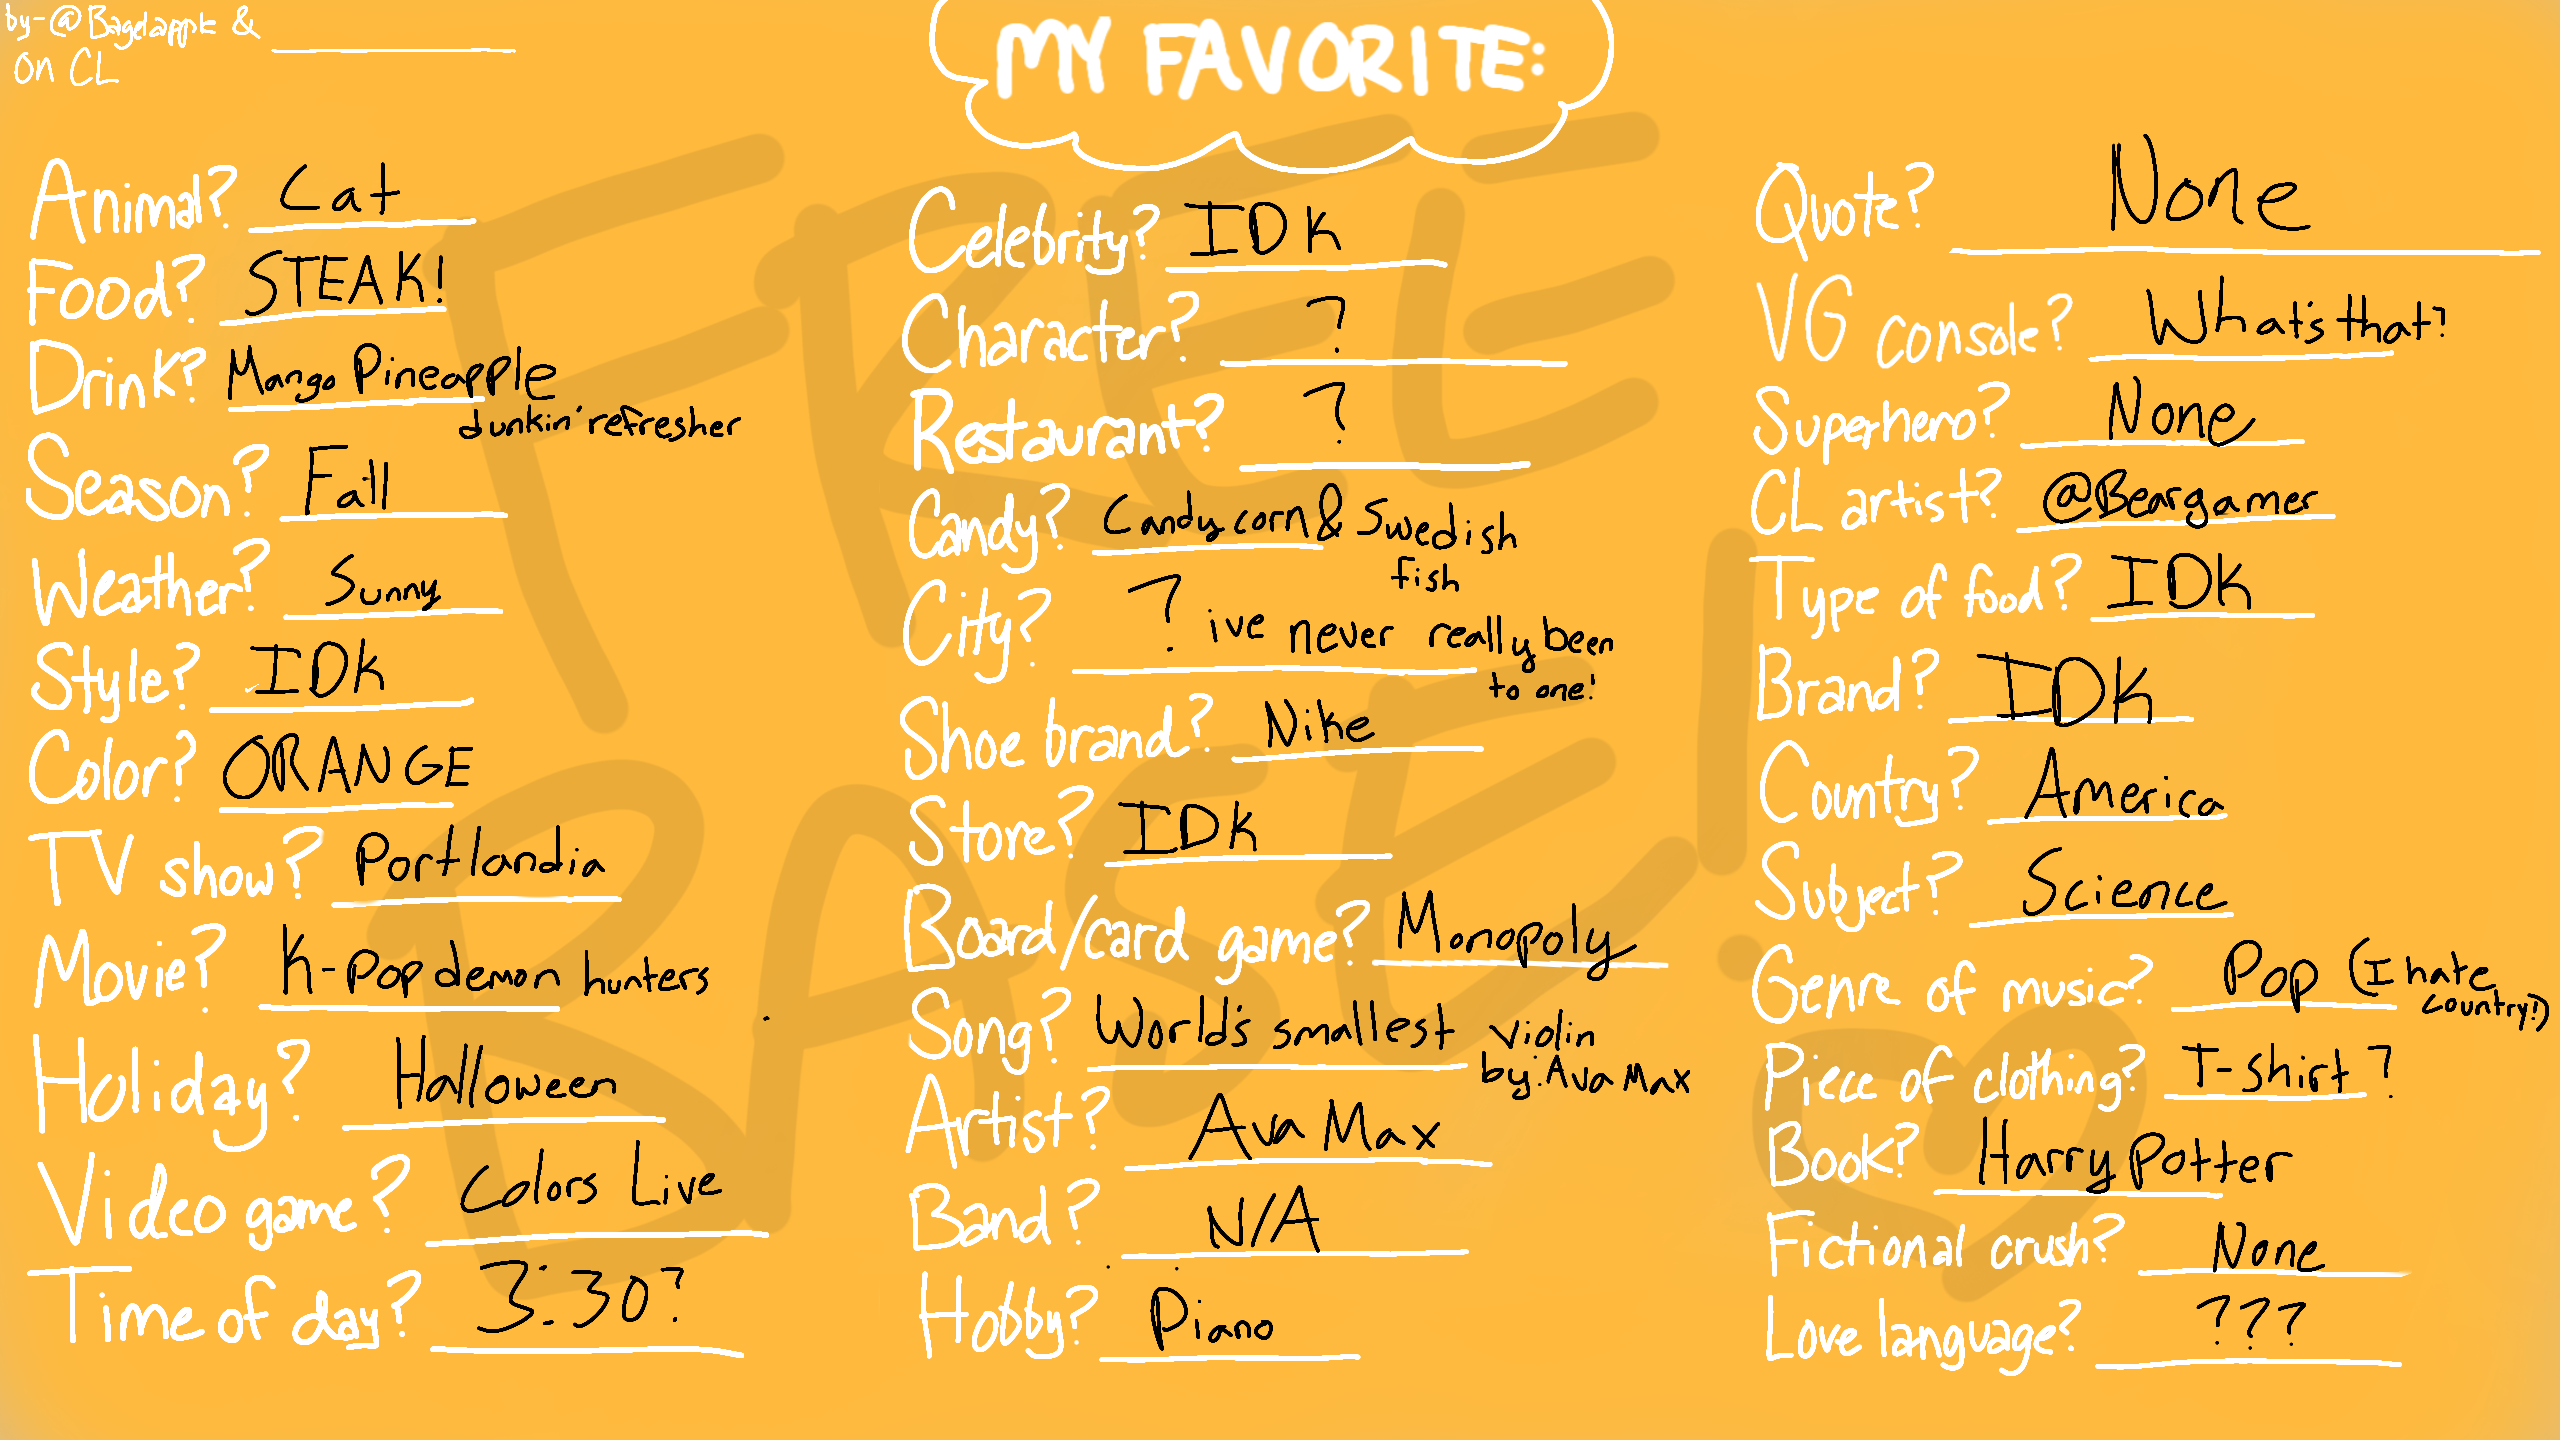 by-@Bagelapple &
on CL
MY FAVORITE:
FREE
BASE!
Animal? Cat
Food? STEAK!
Drink? Mango Pineapple
dunkin' refresher
Season? Fall
Weather? Sunny
Style? IDK
Color? ORANGE
TV show? Portlandia
Movie? K-pop demon hunters
Holiday? Halloween
Video game? Colors Live
Time of day? 3:30?
Celebrity? IDK
Character? ?
Restaurant? ?
Candy? Candy corn & Swedish
fish
City? ? ive never really been
to one!
Shoe brand? Nike
Store? IDK
Board/card game? Monopoly
Song? World's smallest violin
by: Ava Max
Artist? Ava Max
Band? N/A
Hobby? Piano
Quote? None
VG console? What's that?
Superhero? None
CL artist? @Beargamer
Type of food? IDK
Brand? IDK
Country? America
Subject? Science
Genre of music? Pop (I hate
country!)
Piece of clothing? T-shirt?
Book? Harry Potter
Fictional crush? None
Love language? ???